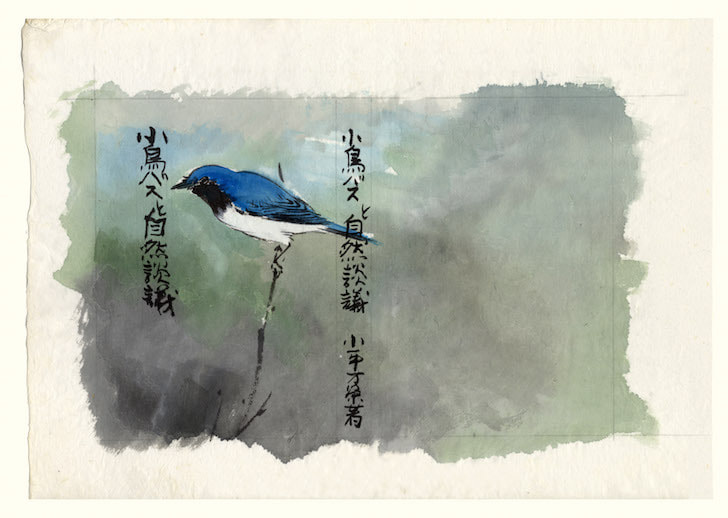 小鳥バスと自然談議
小平万栄著
小鳥バスと自然談議